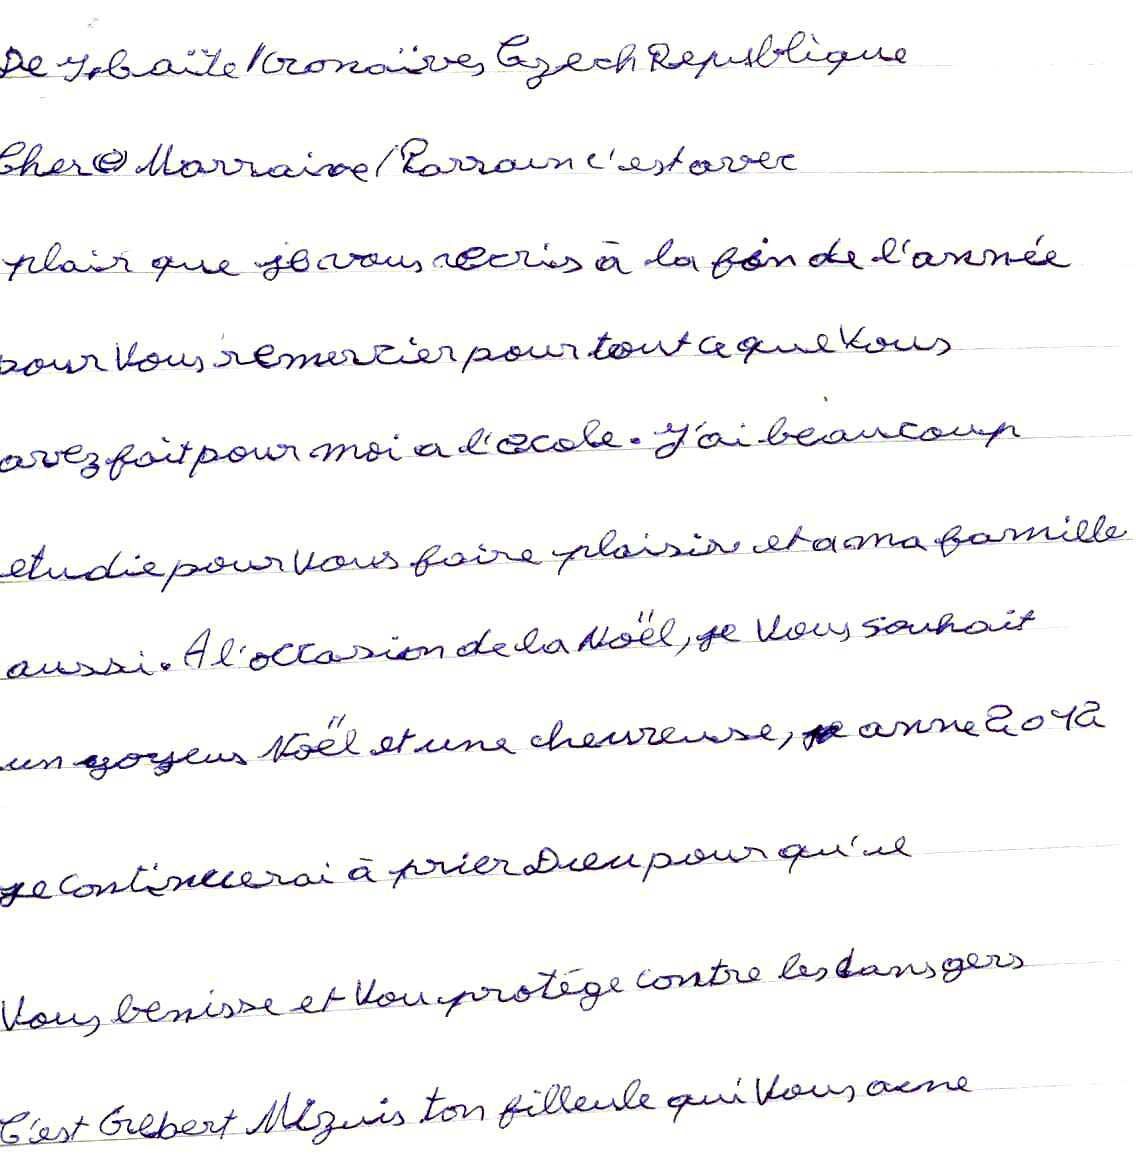 De Czech Republique
Cher(e) Marraine/Parrain c'est avec
plair que je vous recris à la fin de l'année
pour Vous remercier pour tout ce que Vous
avez fait pour moi a l'ecole. J'ai beaucoup
etudie pour Vous faire plaisir et a ma famille
aussi. A l'occasion de la Noël, je Vous souhait
un yoyeus Noël et une cheureuse, anne 2012
je continuerai à prier Dieu pour qu'il
Vous benisse et Vou protége contre les dansgers
C'est Gilbert ton filleule qui Vous aene